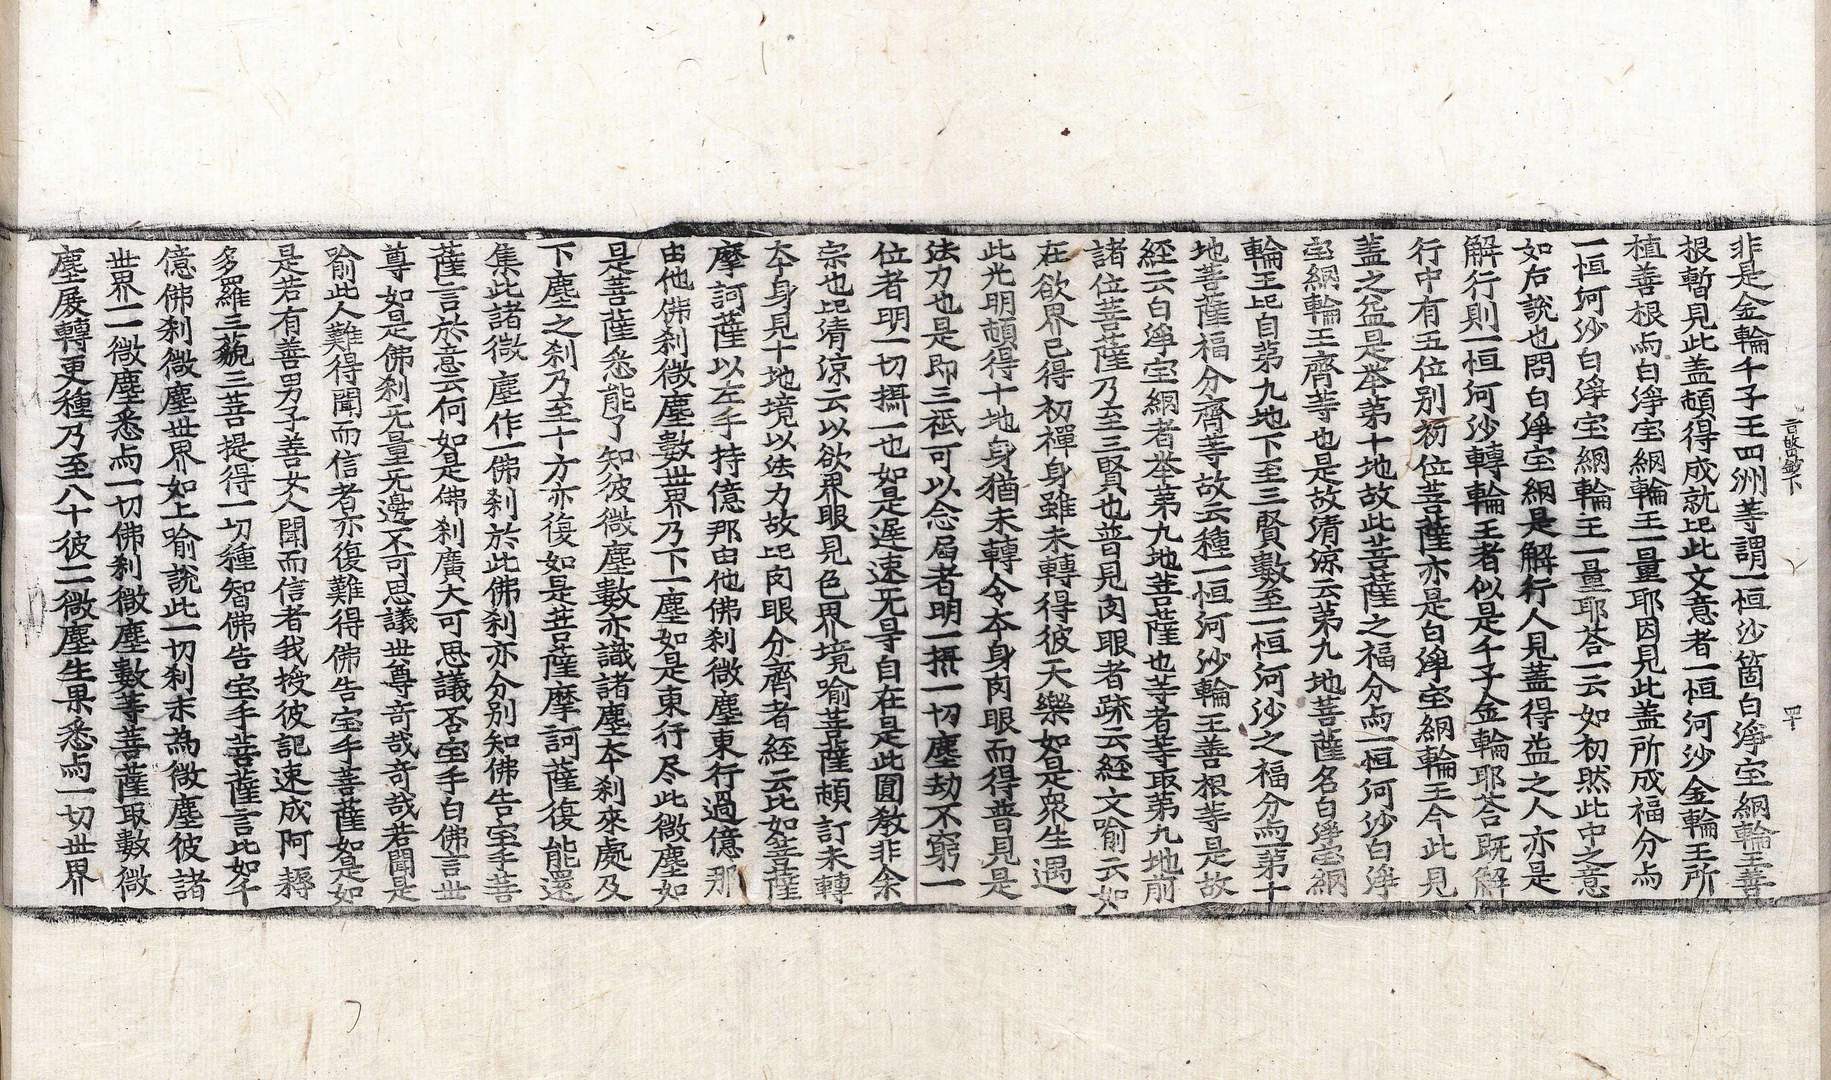 旨皈鈔下
四十
非是金輪千子王四洲等謂一恒沙箇白淨宝網輪王善
根暫見此盖頓得成就此文意者一恒河沙金輪王所
植善根為白淨宝網輪王一量耶因見此盖所成福分為
一恒河沙白淨宝網輪王一量耶荅一云如初然此中之意
如右說也問白淨宝網是解行人見盖得益之人亦是
解行則一恒河沙轉輪王者似是千子金輪耶荅既解
行中有五位別初位菩薩亦是白淨宝網輪王今此見
盖之益是荅第十地故此菩薩之福分為一恒河沙白淨
宝網輪王齊等也是故清凉云第九地菩薩名白淨宝網
輪王此自第九地下至三賢數至一恒河沙之福分為第十
地菩薩福分齊等故云種一恒河沙輪王善根等是故
經云白淨宝網者荅第九地菩薩也等者等取第九地前
諸位菩薩乃至三賢也普見肉眼者䟽云經文喻云如
在欲界已得初禪身雖未轉得彼天樂如是衆生遇
此光明頓得十地身猶未轉令夲身肉眼而得普見是
法力也是即三祗可以念局者明一攝一切塵劫不窮一
位者明一切攝一也如是遅速无导自在是此圓教非余
宗也此清凉云以欲界眼見色界境喻菩薩頓訂未轉
夲身見十地境以法力故此肉眼分齊者經云比如菩薩
摩訶薩以左手持億那由他佛刹微塵東行過億那
由他佛刹微塵數世界乃下一塵如是東行尽此微塵如
是菩薩悉能了知彼微塵數亦識諸塵夲刹來處及
下塵之刹乃至十方亦復如是菩薩摩訶薩復能還
集此諸微塵作一佛刹於此佛刹亦分別知佛告宝手菩
薩言於意云何如是佛刹廣大可思議否宝手白佛言世
尊如是佛刹无量无邊不可思議世尊竒哉竒哉若聞是
喻此人難得聞而信者亦復難得佛告宝手菩薩如是如
是若有善男子善女人聞而信者我授彼記速成阿耨
多羅三藐三菩提得一切種智佛告宝手菩薩言比如千
億佛刹微塵世界如上喻說此一切刹末為微塵彼諸
世界一一微塵悉為一切佛刹微塵數等菩薩取數微
塵展轉更種乃至八十彼二微塵生果悉為一切世界